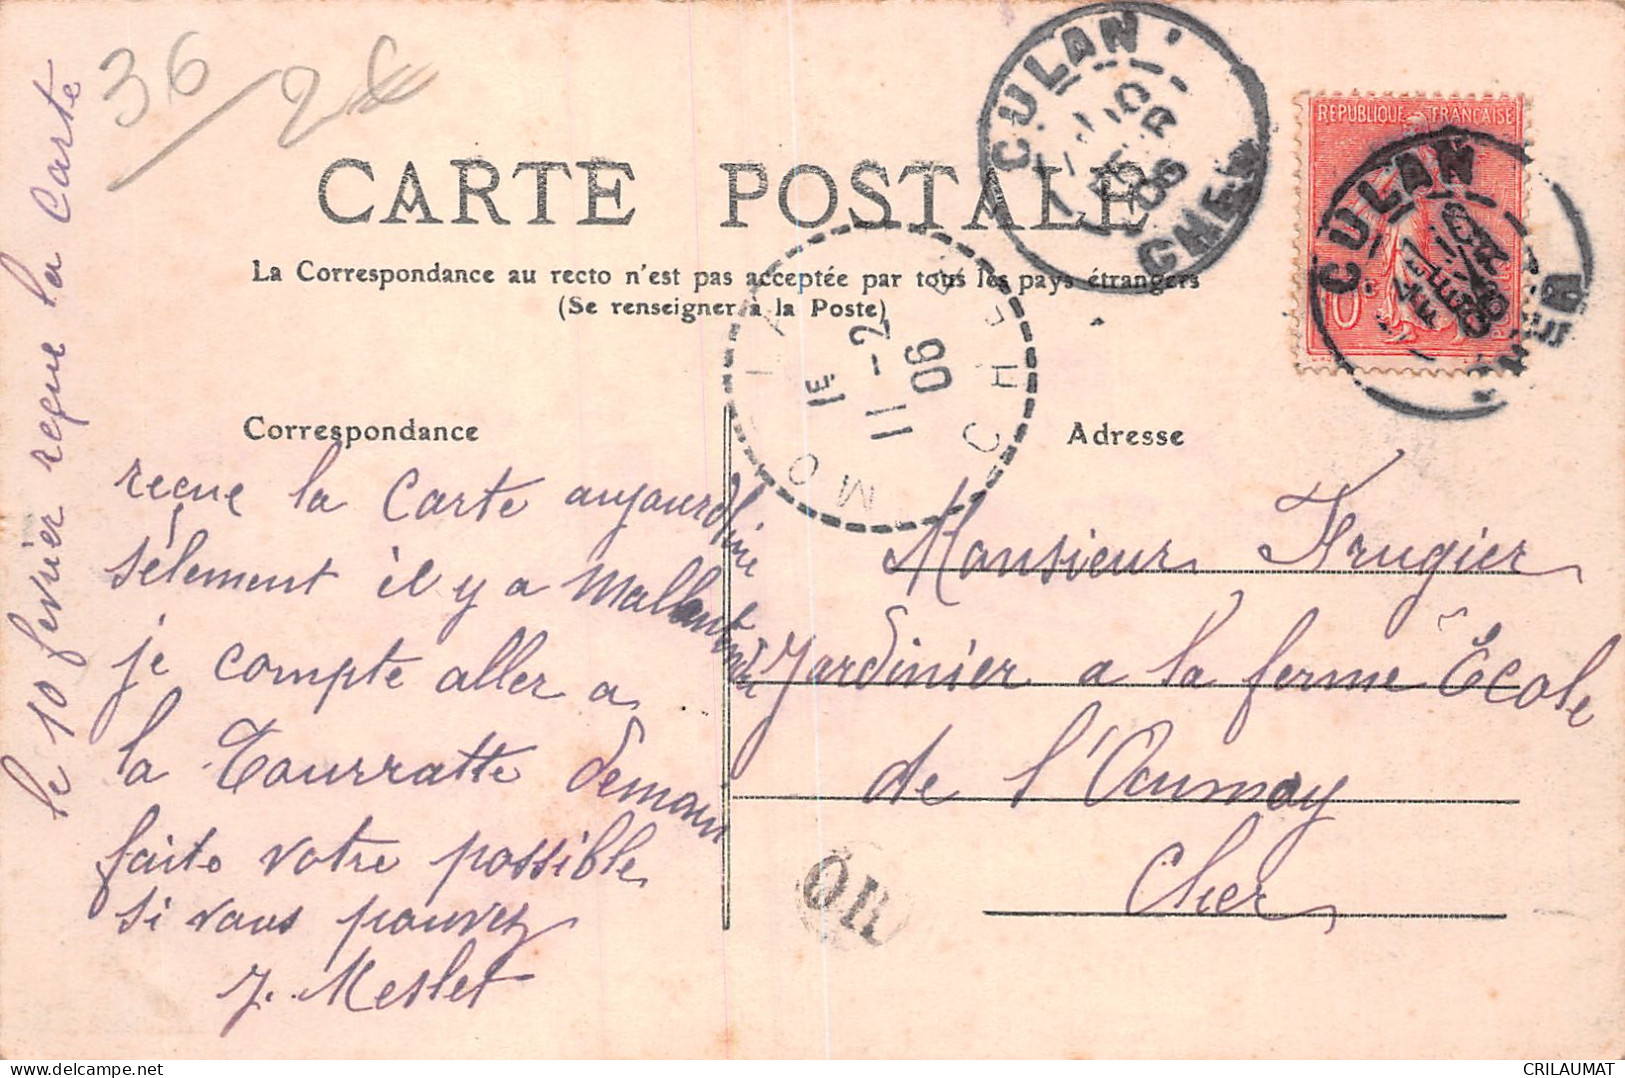 36/2€
CULAN
10
FEVR
06
CHER
REPUBLIQUE FRANÇAISE
10c
CULAN
CHER
CARTE POSTALE
La Correspondance au recto n'est pas acceptée par tous les pays étrangers
(Se renseigner à la Poste)
1E
11-2
06
CHER
Correspondance
Adresse
le 10 fevrier reçue la Carte
reçue la Carte aujourdhui
sélement il y a mallentendu
je compte aller a
la Tourratte demain
faite votre possible
si vous pouvez
J. Meslet
Monsieur Frugier
Jardinier a la ferme École
de l'Oaumoy
Cher
OR
CRILAUMAT